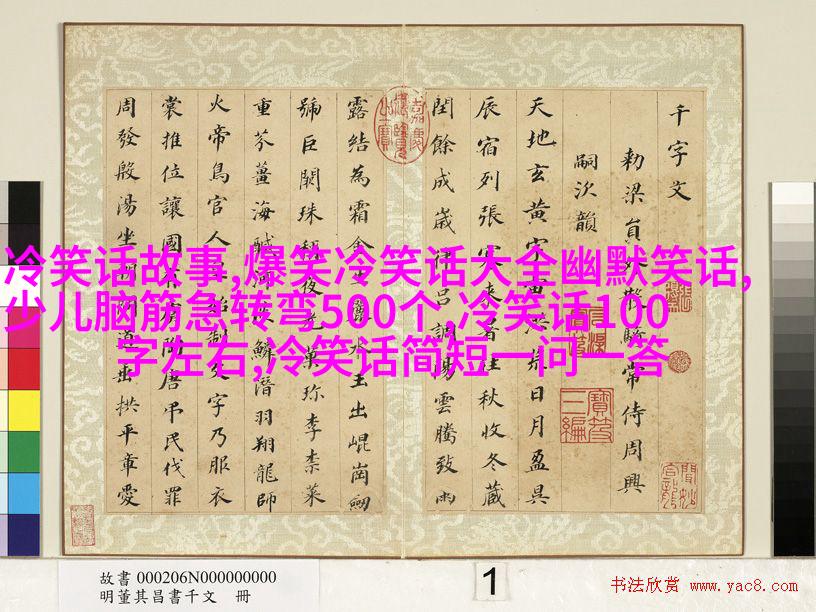 千字文
勅梁員外散騎常侍周興
嗣次韻
天地玄黃宇宙洪荒日月盈昃
辰宿列張寒來暑往秋收冬藏
閏餘成歲律呂調陽雲騰致雨
露結為霜金生麗水玉出崐崗劍
號巨闕珠稱夜光菓珍李柰菜
重芥薑海鹹河淡鱗潛羽翔龍師
火帝鳥官人皇始制文字乃服衣
裳推位讓國有虞陶唐弔民伐罪
周發殷湯坐朝問道垂拱平章愛
寶笈三編
冷笑话故事,爆笑冷笑话大全幽默笑话,
少儿脑筋急转弯500个,冷笑话100
字左右,冷笑话简短一问一答
故書 000206N000000000
明董其昌書千文 冊
1
书法欣赏 www.yac8.com